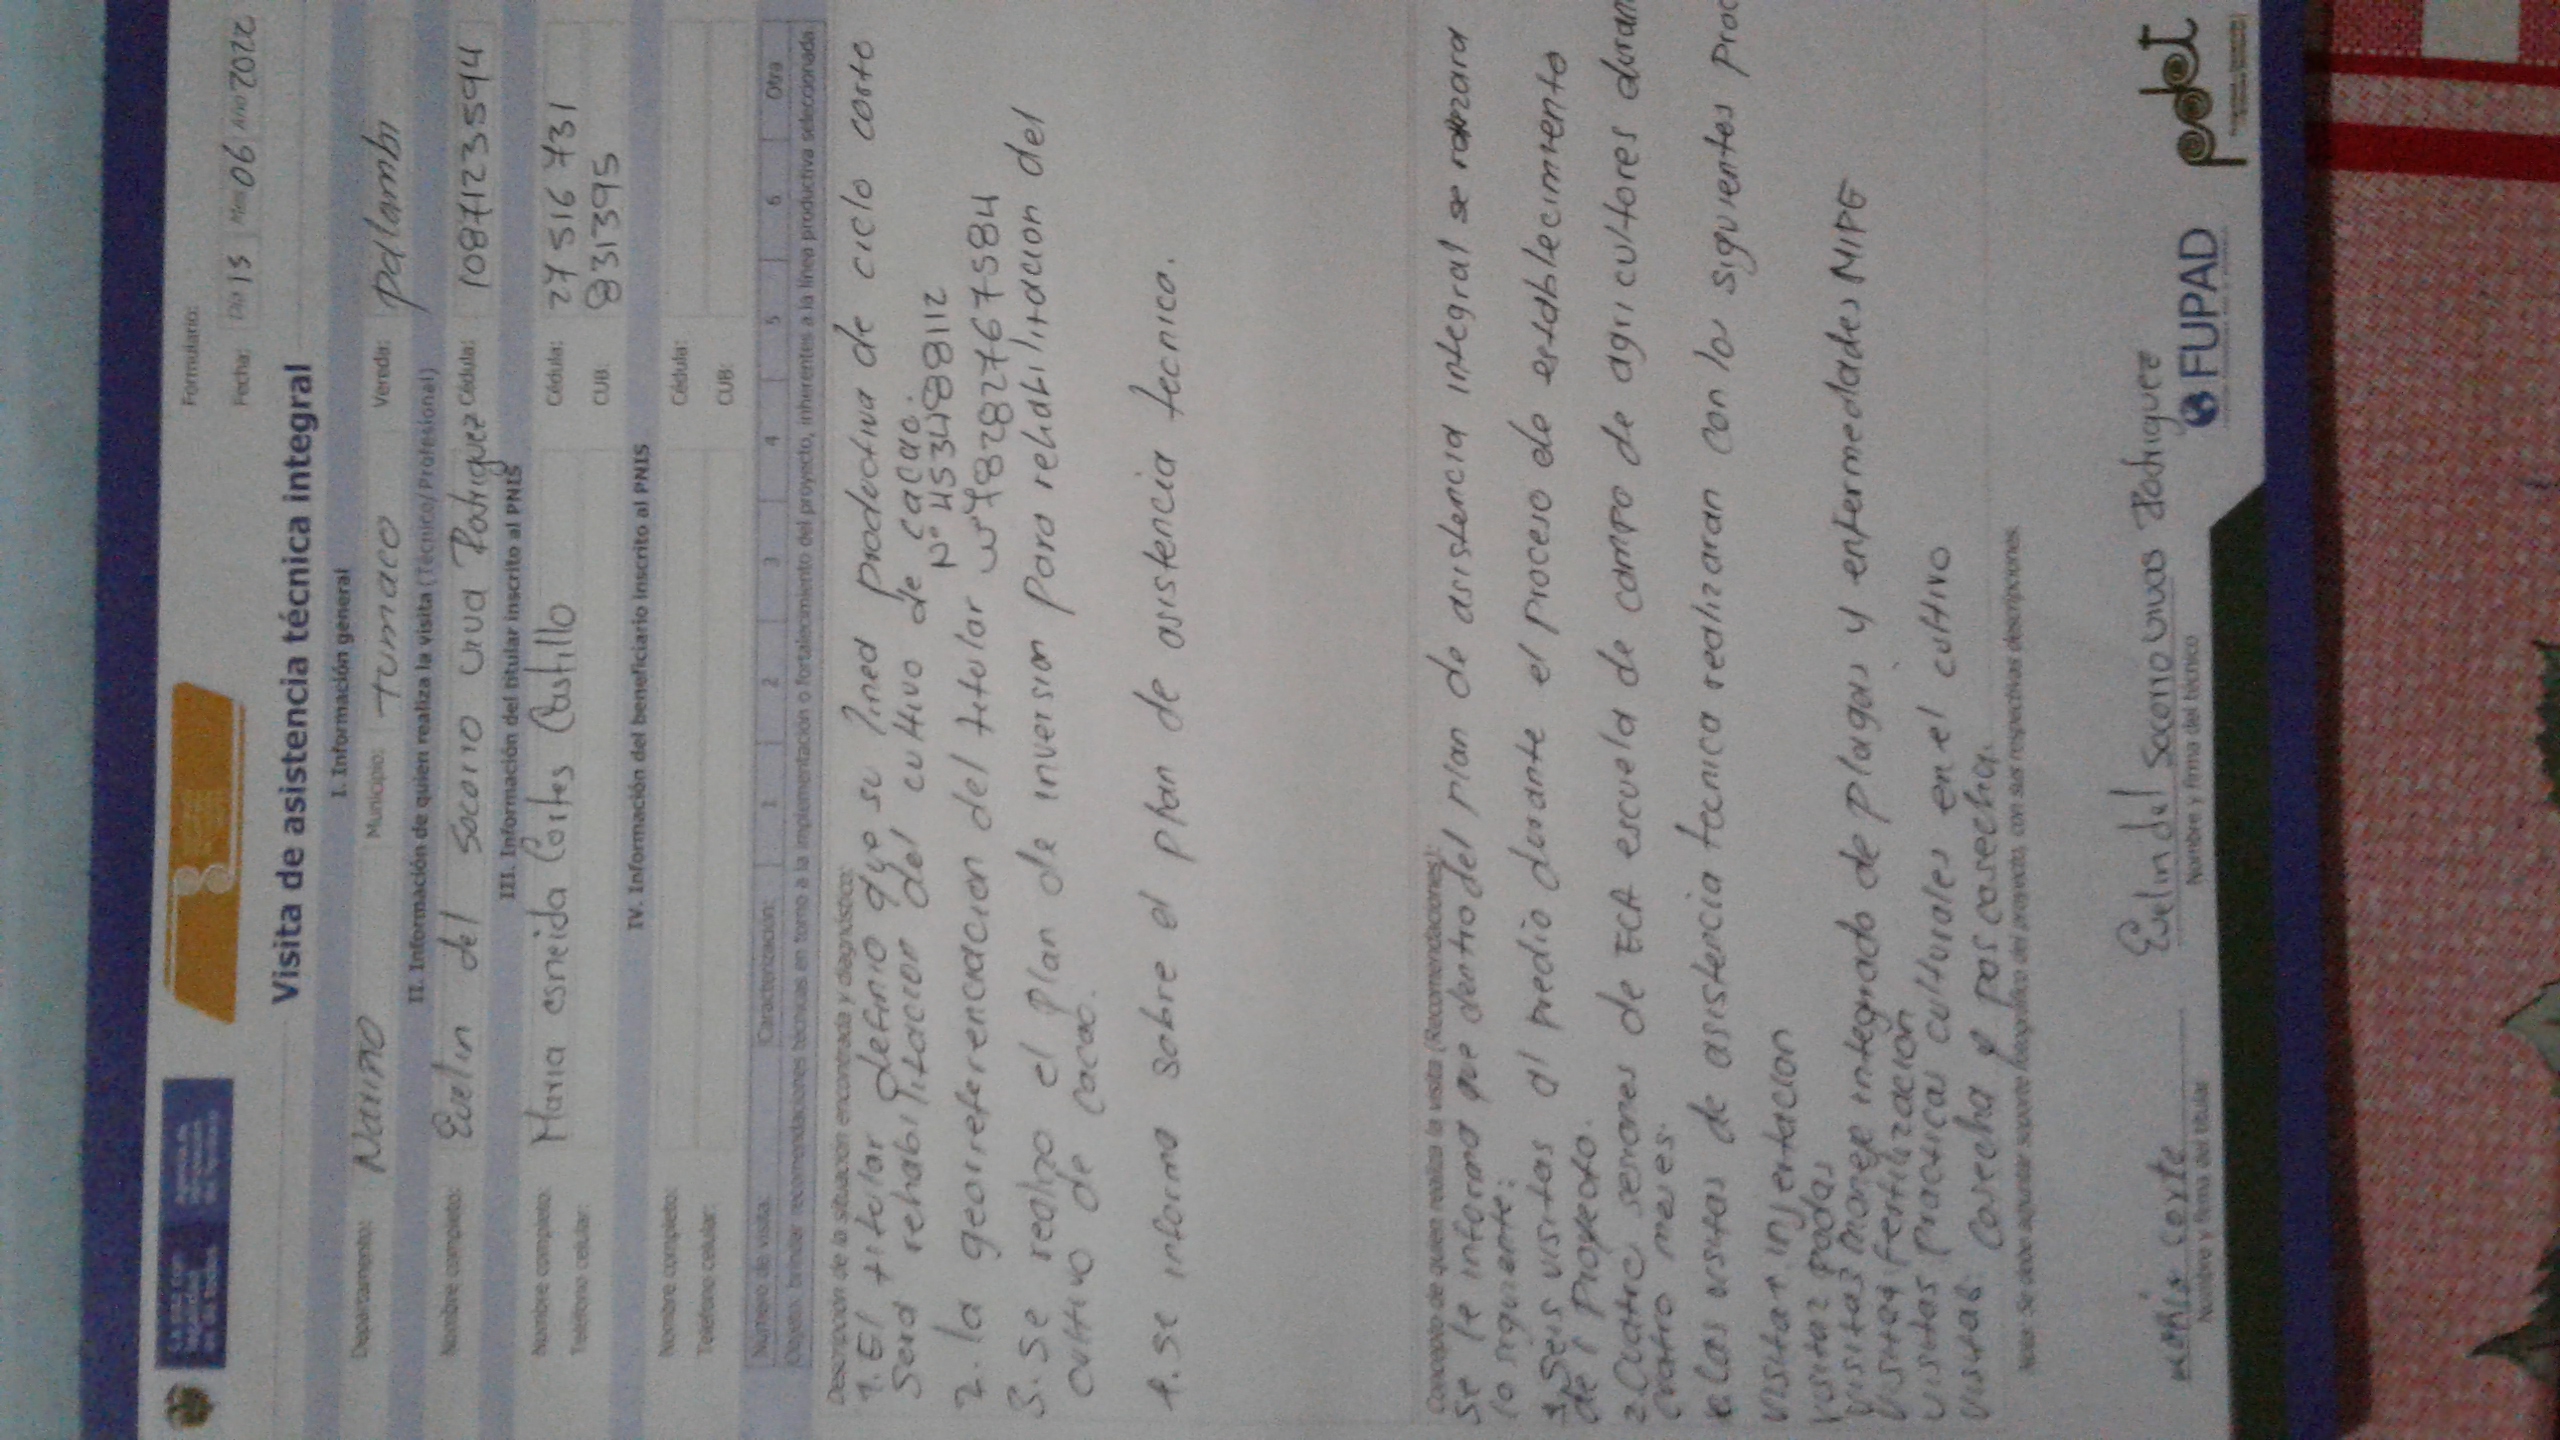 Formulario:
Fecha: Día 15 Mes 06 Año 2022
Visita de asistencia técnica integral
I. Información general
Departamento: Nariño Municipio: tumaco Vereda: palambi
II. Información de quien realiza la visita (Técnico/Profesional)
Nombre completo: Evelin del socorro vivas Rodriguez Cédula: 1087123594
III. Información del titular inscrito al PNIS
Nombre completo: Maria esneida Cortes Castillo Cédula: 27 516 731
Teléfono celular: CUB: 831395
IV. Información del beneficiario inscrito al PNIS
Nombre completo: Cédula:
Teléfono celular: CUB:
Número de visita: Caracterización: 1 2 3 4 5 6 Otra
Objeto: brindar recomendaciones técnicas en torno a la implementación o fortalecimiento del proyecto, inherentes a la línea productiva seleccionada
Descripción de la situación encontrada y diagnóstico:
1. El titular definio que su linea productiva de ciclo corto
Sera rehabilitacion del cultivo de cacao.
N° 1.53488112
2. la georreferenciacion del titular W°78.28276 7584
3. se realizo el plan de inversion para rehabilitacion del
cultivo de cacao.
4. se informo sobre el plan de asistencia tecnica.
Concepto de quien realiza la visita (Recomendaciones):
se le informa que dentro del plan de asistencia integral se
lo siguiente:
1. Seis visitas al predio durante el proceso de establecimiento
del Proyecto.
2. Cuatro seciones de ECA escuela de campo de agricultores
cuatro meses.
las visitas de asistencia tecnica realizaran con los siguientes
visita 1 injertacion
visita 2 podas
visita 3 manejo integrado de plagas y enfermedades MIPE
visita 4 fertilizacion
visita 5 practicas culturales en el cultivo
visita 6 cosecha y poscosecha.
Nota: Se debe adjuntar soporte fotográfico del proyecto, con sus respectivas descripciones.
maria corte Evelin del Socorro vivas Rodriguez
Nombre y firma del titular Nombre y firma del técnico
FUPAD
pdet